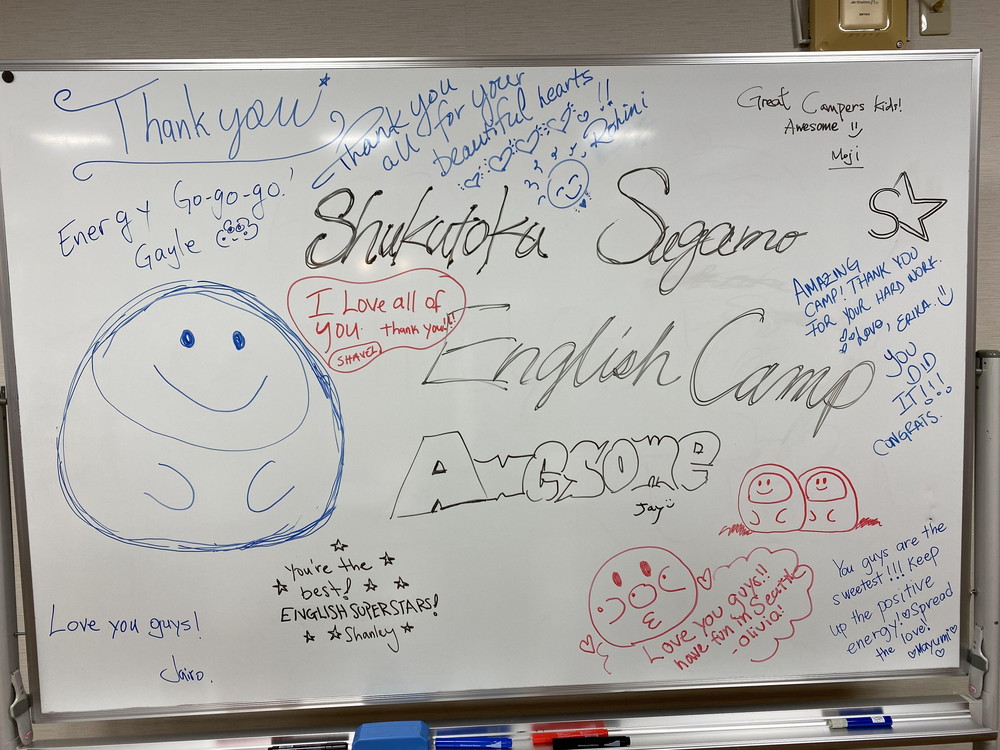 Thank you
Thank you
all for your
beautiful hearts
!!
Rohini
Great Campers kids!
Awesome
Moji
Energy Go-go-go!
Gayle
Shukutoku Sugamo
S
AMAZING
CAMP! THANK YOU
FOR YOUR HARD WORK.
Love, ERIKA.
I Love all of
you. thank you!!
SHAVEL
English Camp
YOU
DID
IT!!!
CONGRATS.
Awesome
Jay
You're the
best!
ENGLISH SUPERSTARS!
Shanley
Love you guys!
Jairo.
Love you guys!!
have fun in Seattle
-olivia!
You guys are the
sweetest!!! Keep
up the positive
energy! Spread
the love!
Mayumi